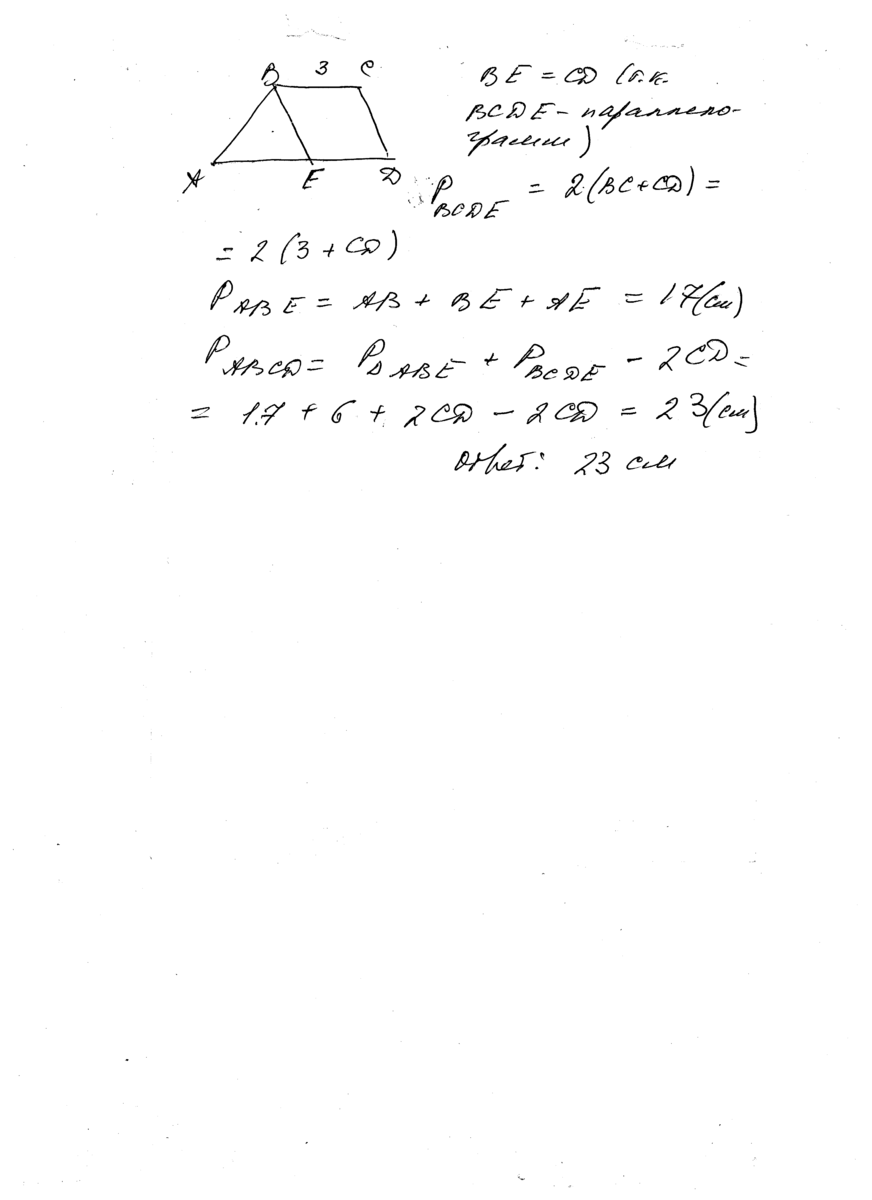 B 3 C
A E D
BE = CD (т.к.
BCDE - параллело-
грамм)
P BCDE = 2(BC+CD) =
= 2(3 + CD)
P ABE = AB + BE + AE = 17(см)
P ABCD = P Δ ABE + P BCDE - 2CD =
= 17 + 6 + 2CD - 2CD = 23(см)
Ответ: 23 см